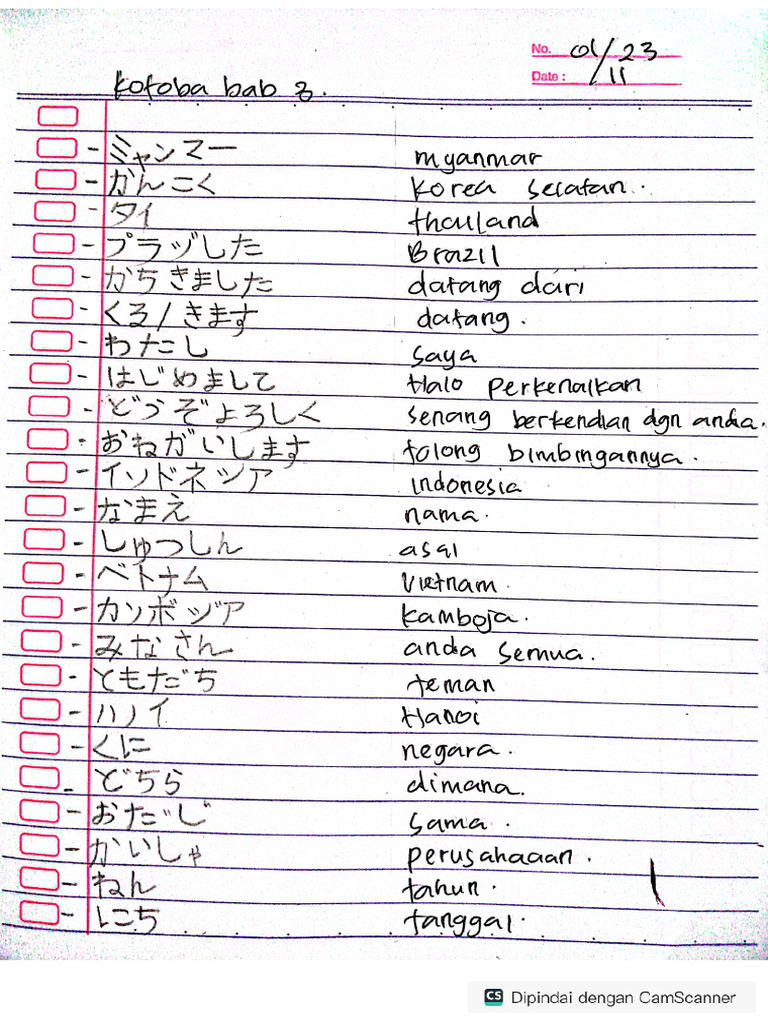 No. 01/23
Date: /11
Kotoba bab 3.
- ミャンマー myanmar
- かんこく Korea selatan.
- タイ thailand
- プラヅした Brazil
- かちきました datang dari
- くる/きます datang.
- わたこし saya
- はじめまして Halo perkenalkan
- どうぞよろしく senang berkendian dgn anda.
- おねがいします tolong bimbingannya.
- イソドネツア indonesia
- なまえ nama.
- しゅつしん asal
- ベトナム Vietnam.
- カソボヅア kamboja.
- みなさん anda semua.
- ともだち teman
- ハノイ Hanoi
- くに negara.
- どちら dimana.
- おだじ sama.
- かいしゃ perusahaaan.
- ねん tahun.
- にこち tanggal.
CS Dipindai dengan CamScanner